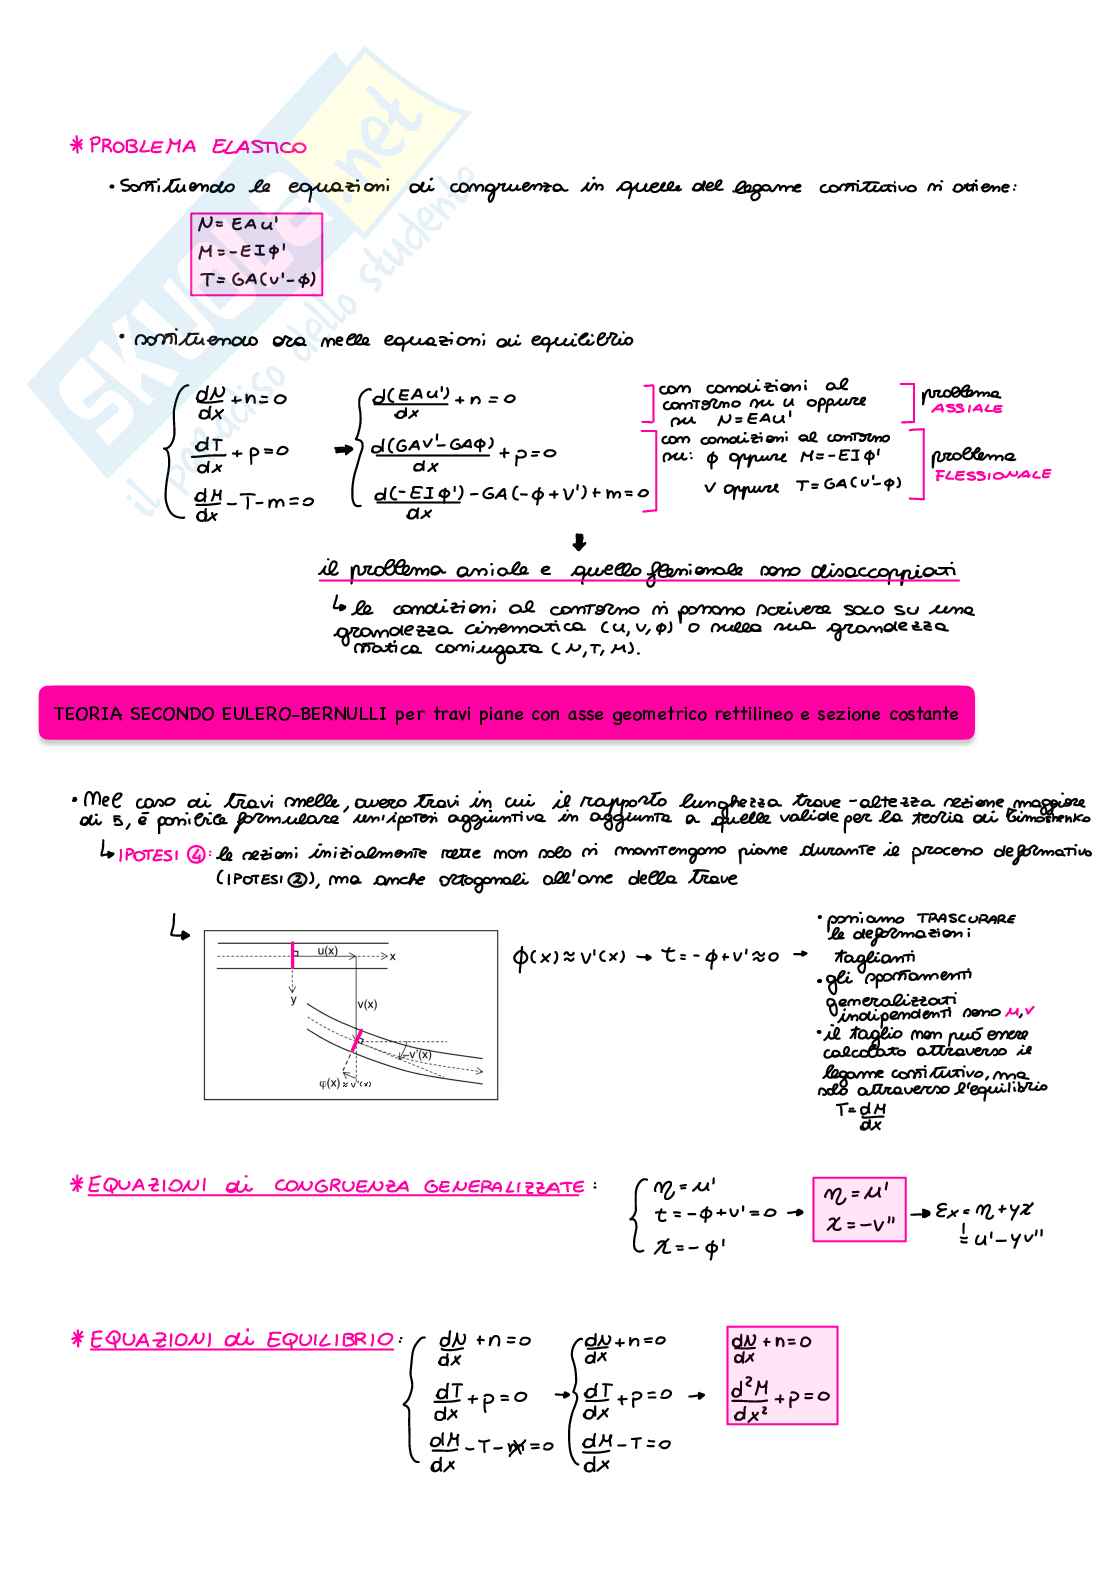 * PROBLEMA ELASTICO
• Sostituendo le equazioni di congruenza in quelle del legame costitutivo si ottiene:
N = EAu'
M = -EIϕ'
T = GA(v'-ϕ)
• sostituendo ora nelle equazioni di equilibrio
dN/dx + n = 0
dT/dx + p = 0
dM/dx - T - m = 0
→
d(EAu')/dx + n = 0
d(GAv'-GAϕ)/dx + p = 0
d(-EIϕ')/dx - GA(-ϕ+v') + m = 0
con condizioni al
contorno su u oppure
su N = EAu'
problema
ASSIALE
con condizioni al contorno
su: ϕ oppure M = -EIϕ'
v oppure T = GA(v'-ϕ)
problema
FLESSIONALE
il problema assiale e quello flessionale sono disaccoppiati
↳ le condizioni al contorno si possono scrivere solo su una
grandezza cinematica (u, v, ϕ) o sulla sua grandezza
statica coniugata (N, T, M).
TEORIA SECONDO EULERO-BERNULLI per travi piane con asse geometrico rettilineo e sezione costante
• Nel caso di travi snelle, ovvero travi in cui il rapporto lunghezza trave - altezza sezione maggiore
di 5, è possibile formulare un'ipotesi aggiuntiva in aggiunta a quelle valide per la teoria di Timoshenko
↳ IPOTESI ④: le sezioni inizialmente rette non solo si mantengono piane durante il processo deformativo
(IPOTESI ②), ma anche ortogonali all'asse della trave
u(x)
x
y
v(x)
-v'(x)
φ(x) ≈ v'(x)
ϕ(x) ≈ v'(x) → t = -ϕ + v' ≈ 0 →
• possiamo TRASCURARE
le deformazioni
taglianti
• gli spostamenti
generalizzati
indipendenti sono u, v
• il taglio non può essere
calcolato attraverso il
legame costitutivo, ma
solo attraverso l'equilibrio
T = dM/dx
* EQUAZIONI di CONGRUENZA GENERALIZZATE :
η = u'
t = -ϕ + v' = 0 →
χ = -ϕ'
η = u'
χ = -v''
→ εx = η + yχ
= u' - yv''
* EQUAZIONI di EQUILIBRIO :
dN/dx + n = 0
dT/dx + p = 0
dM/dx - T - m = 0
→
dN/dx + n = 0
dT/dx + p = 0
dM/dx - T = 0
→
dN/dx + n = 0
d²M/dx² + p = 0
SKUOLA.net
il paradiso dello studente